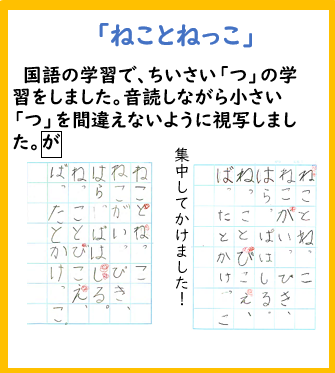 「ねことねっこ」
国語の学習で、ちいさい「つ」の学
習をしました。音読しながら小さい
「つ」を間違えないように視写しまし
た。が
ねことねっこ
ねこがいっぴき、
はらっぱはしる。
ねっことびこえ、
ばったとかけっこ
集中してかけました！
ねことねっこ
ねこがいっぴき、
はらっぱはしる。
ねっことびこえ、
ばったとかけっこ